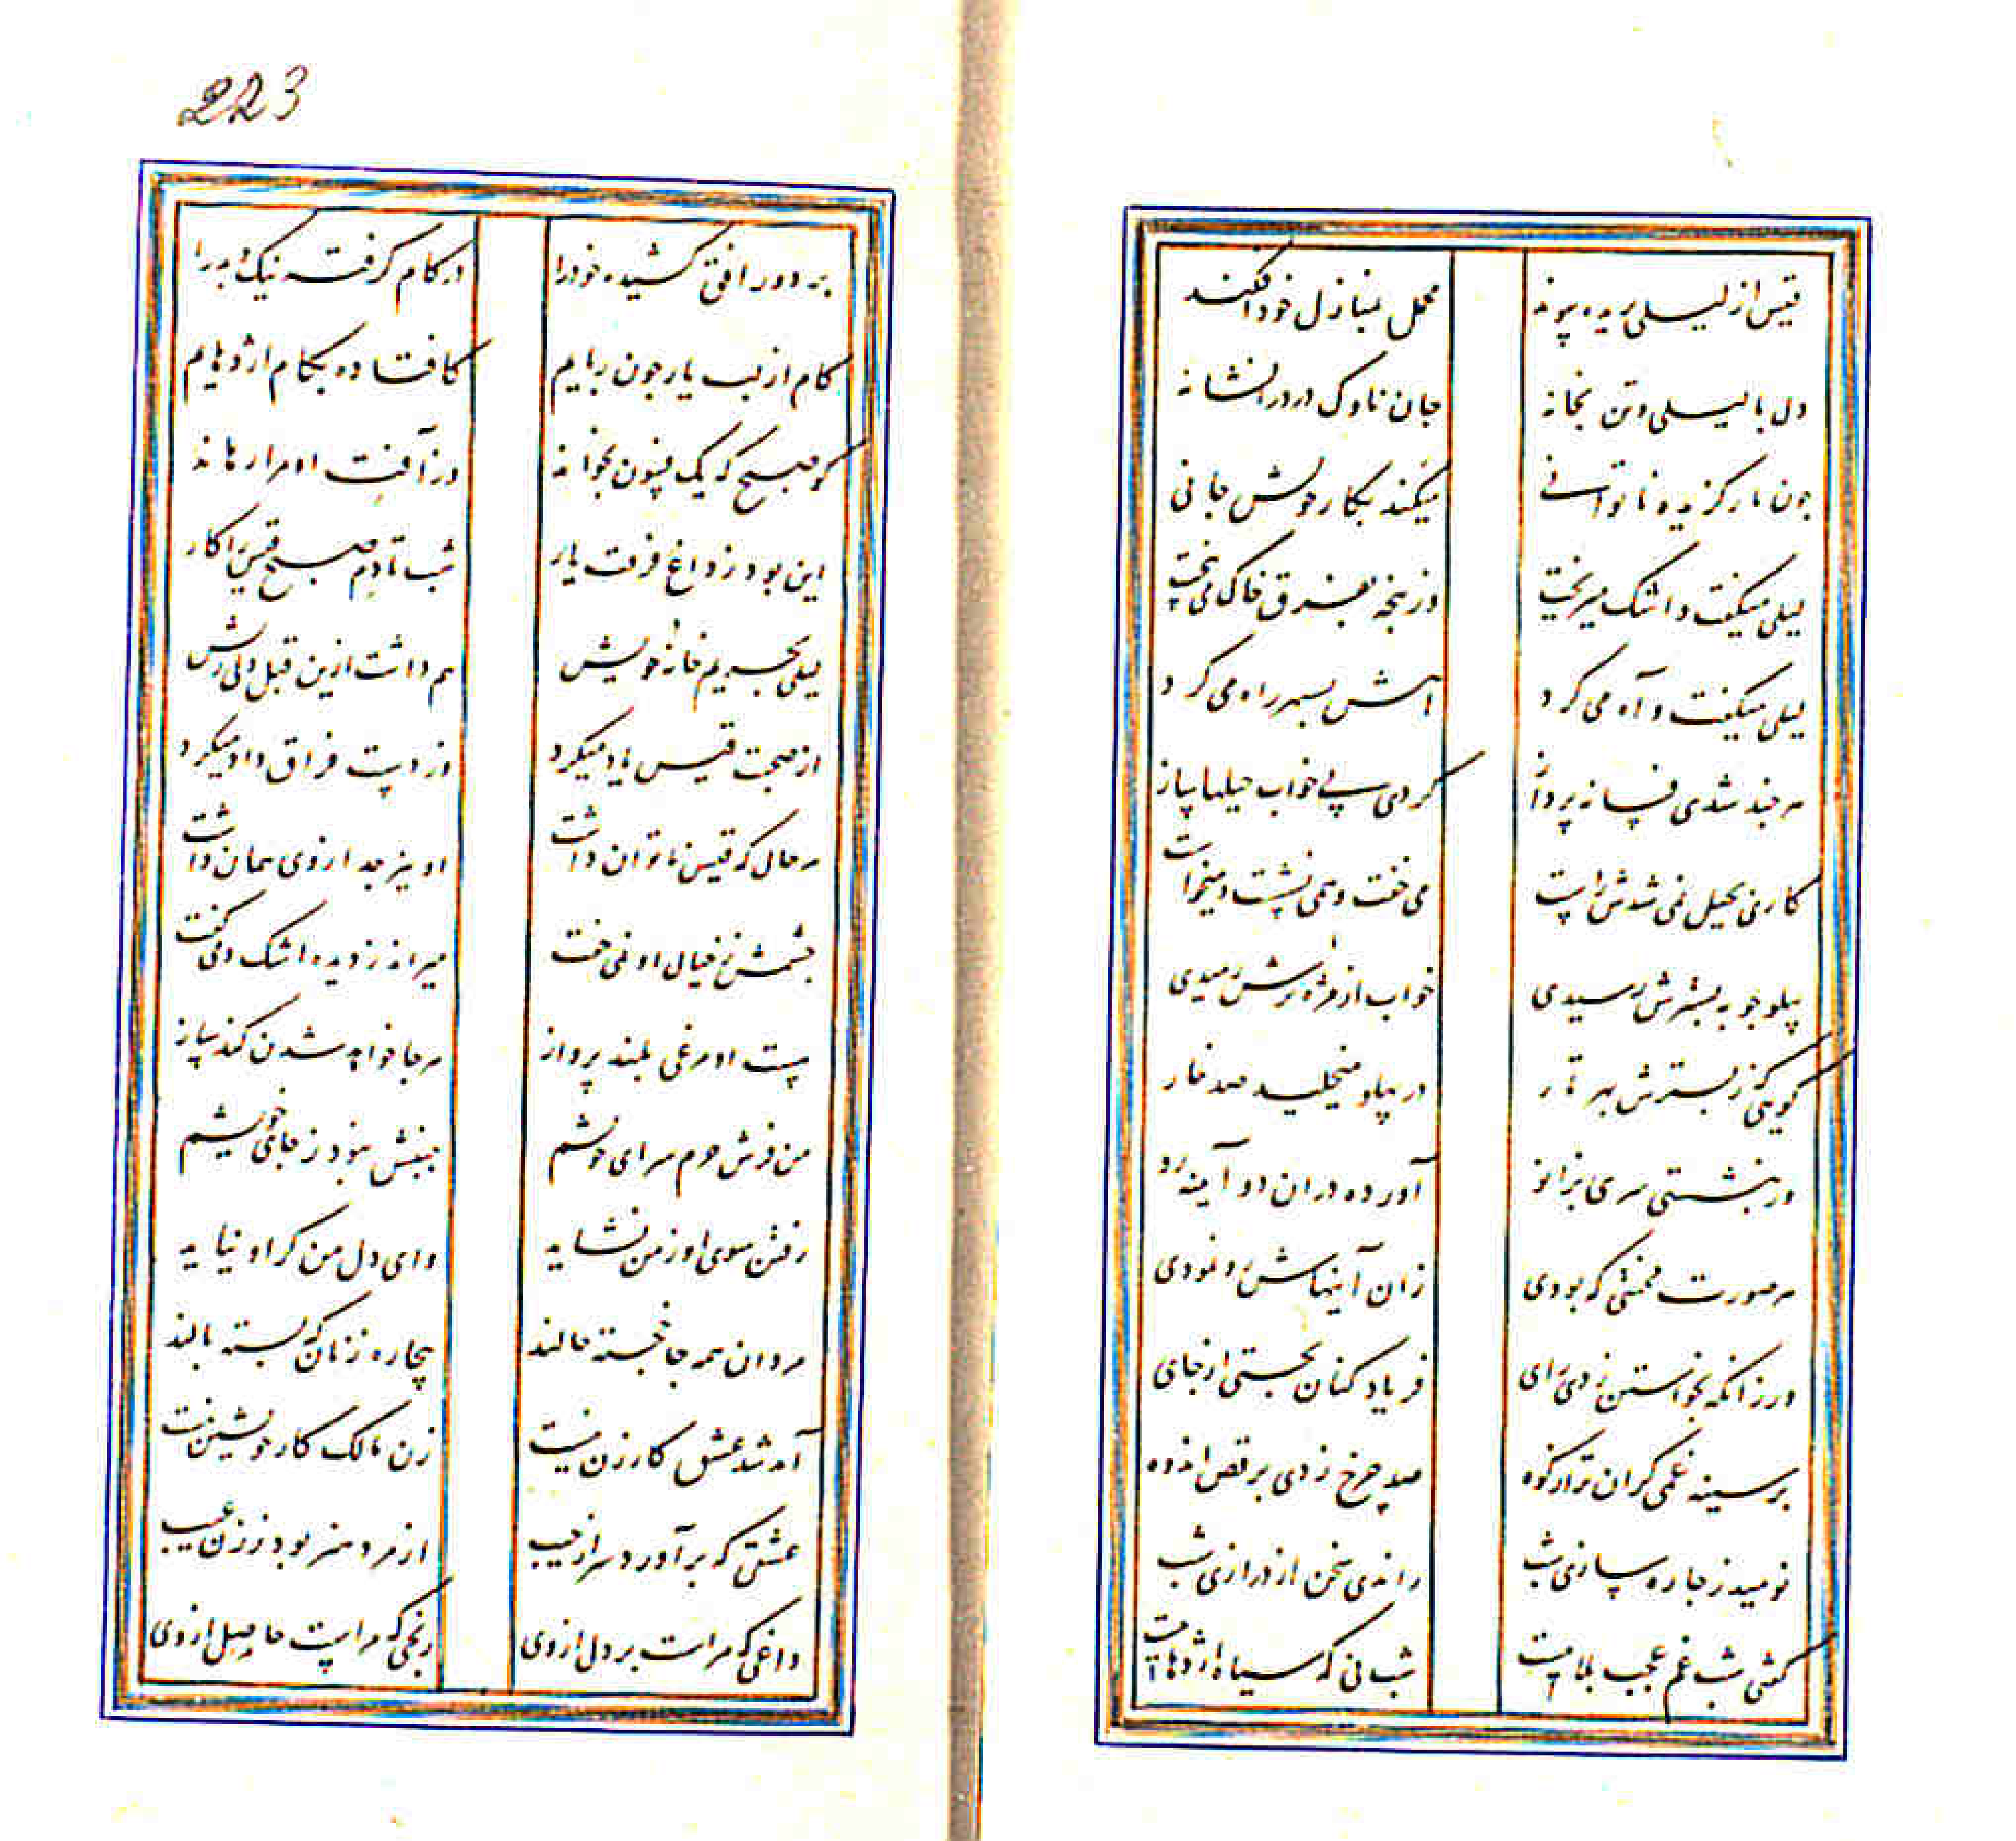 قیس از لیلی بریده پیوند محمل بمنازل خود افکند
دل با لیلی و تن بخانه جان ناوک درد را نشانه
چون مار گزیده ناتوانی میکند بکار خویش جانی
لیلی میگفت و اشک میریخت وز پنجه بفرق خاک می بیخت
لیلی میگفت و آه می کرد آهش بسپهر راه می کرد
هر چند شدی فسانه پرداز کردی پی خواب حیلها ساز
کارش بحیل نمی شدش راست می خفت و همی نشست و میخواست
پهلو چو به بسترش رسیدی خواب از مژه ترش رمیدی
گویی کز بسترش بهر تار در پهلو میخلید صد خار
ور بنشستی سری بزانو آورده در آن دو آینه رو
هر صورت محنتی که بودی زان آینهاش رو نمودی
ور زانکه بخواستن زدی رای فریاد کنان بجستی از جای
بر سینه غمی گران تر از کوه صد چرخ زدی برقص اندوه
نومید ز چاره سازی شب راندی سخن از درازی شب
کش شب غم عجب بلاییست شب نی که سیاه اژدهاییست
223
بر دور افق کشیده خود را در کام گرفته نیک و بد را
کام از لب یار چون ربایم کافتاده بکام اژدهایم
کو صبح که یک فسون بخواند وز آفت او مرا رهاند
این بود ز داغ فرقت یار شب تا دم صبح قیس را کار
لیلی بحریم خانه خویش هم داشت ازین قبل دلی ریش
از صحبت قیس یاد میکرد از دست فراق داد میکرد
هر حال که قیس ناتوان داشت او نیز جدا ز وی همان داشت
چشمش ز خیال او نمی خفت میراند ز دیده اشک و می گفت
هست او مرغی بلند پرواز هر جا خواهد شدن کند ساز
من فرش حرم سرای خویشم جنبش نبود ز جای خویشم
رفتن سوی او ز من نشاید وای دل من گر او نیاید
مردان همه جا خجسته حالند بیچاره زنان که بسته بالند
آمد شد عشق کار زن نیست زن مالک کار خویشتن نیست
عشقی که برآورد سر از جیب از مرد هنر بود ز زن عیب
داغی که مراست بر دل از وی رنجی که مراست حاصل از وی